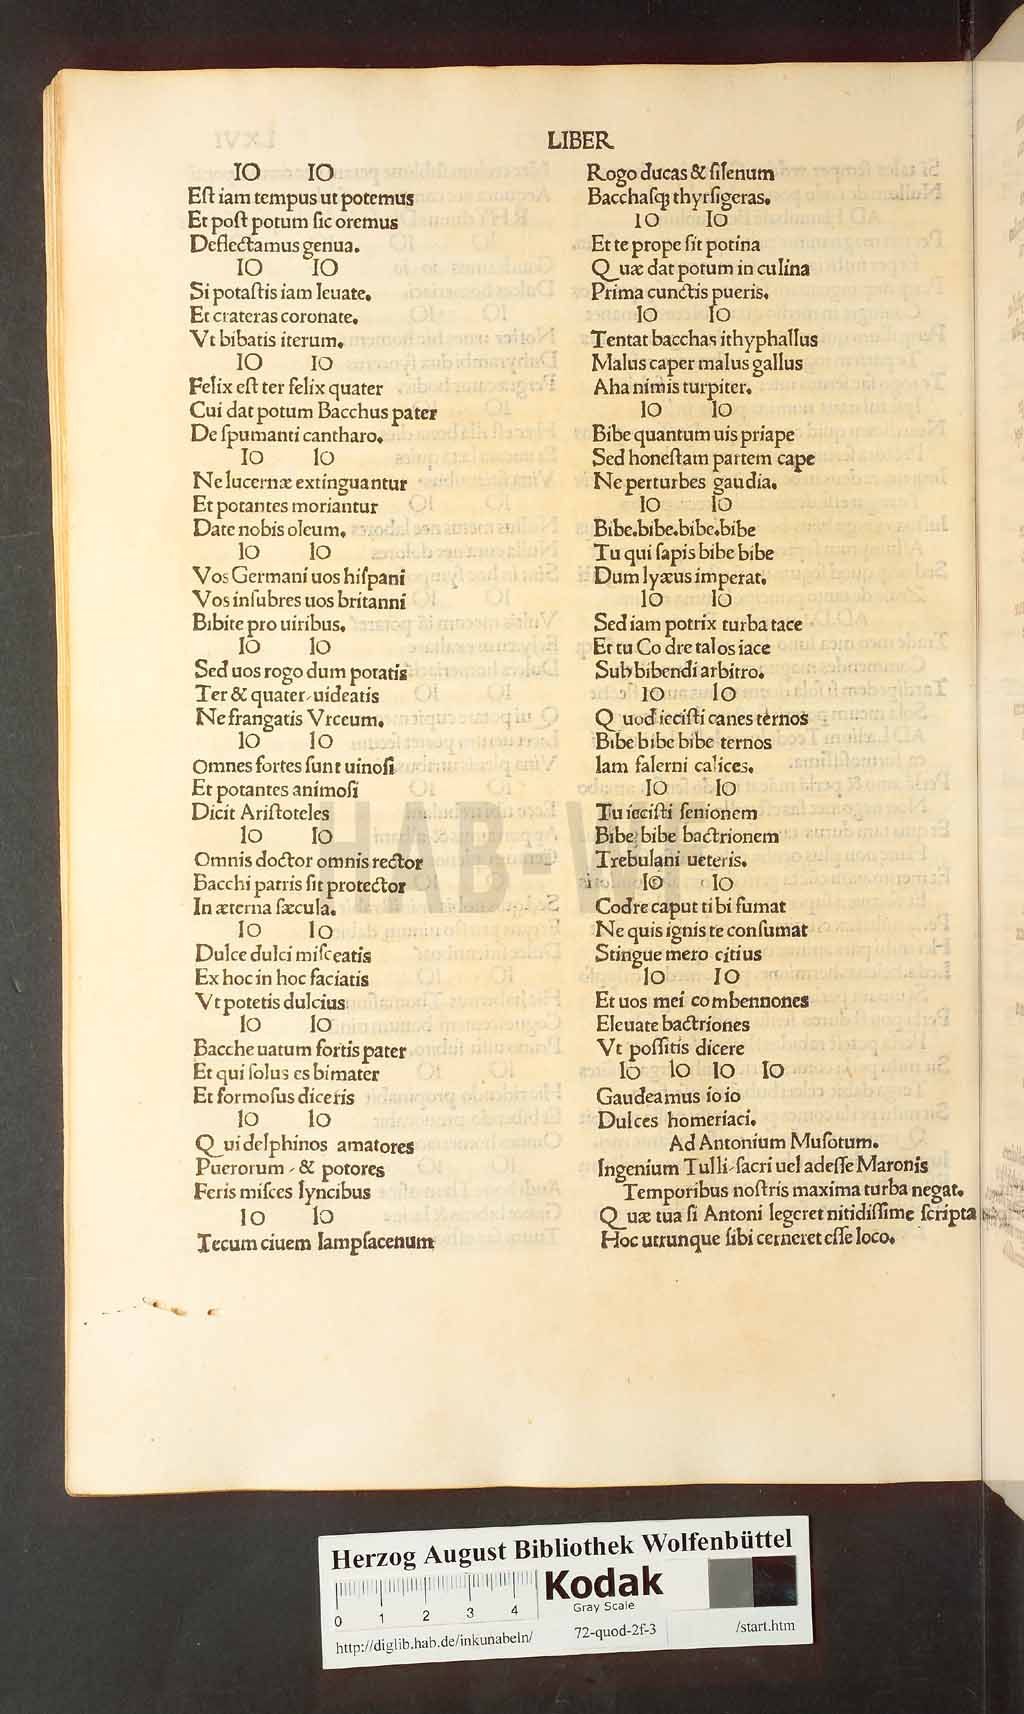 LIBER
IO IO
Eſt iam tempus ut potemus
Et poſt potum ſic oremus
Deflectamus genua.
IO IO
Si potaſtis iam leuate.
Et crateras coronate.
Vt bibatis iterum.
IO IO
Felix eſt ter felix quater
Cui dat potum Bacchus pater
De ſpumanti cantharo.
IO IO
Ne lucernæ extinguantur
Et potantes moriantur
Date nobis oleum.
IO IO
Vos Germani uos hiſpani
Vos inſubres uos britanni
Bibite pro uiribus.
IO IO
Sed uos rogo dum potatis
Ter & quater uideatis
Ne frangatis Vrceum.
IO IO
Omnes fortes ſunt uinoſi
Et potantes animoſi
Dicit Ariſtoteles
IO IO
Omnis doctor omnis rector
Bacchi patris ſit protector
In æterna ſæcula.
IO IO
Dulce dulci miſceatis
Ex hoc in hoc faciatis
Vt potetis dulcius
IO IO
Bacche uatum fortis pater
Et qui ſolus es bimater
Et formoſus diceris
IO IO
Qui delphinos amatores
Puerorum & potores
Feris miſces lyncibus
IO IO
Tecum ciuem lampſacenum
Rogo ducas & ſilenum
Bacchaſqꝫ thyrſigeras.
IO IO
Et te prope ſit potina
Quæ dat potum in culina
Prima cunctis pueris.
IO IO
Tentat bacchas ithyphallus
Malus caper malus gallus
Aha nimis turpiter.
IO IO
Bibe quantum uis priape
Sed honeſtam partem cape
Ne perturbes gaudia.
IO IO
Bibe.bibe.bibe.bibe
Tu qui ſapis bibe bibe
Dum lyæus imperat.
IO IO
Sed iam potrix turba tace
Et tu Codre talos iace
Sub bibendi arbitro.
IO IO
Quod ieciſti canes ternos
Bibe bibe bibe ternos
Iam falerni calices.
IO IO
Tu ieciſti ſenionem
Bibe bibe bactrionem
Trebulani ueteris.
IO IO
Codre caput tibi fumat
Ne quis ignis te conſumat
Stingue mero citius
IO IO
Et uos mei combennones
Eleuate bactriones
Vt poſſitis dicere
IO IO IO IO
Gaudeamus io io
Dulces homeriaci.
Ad Antonium Muſotum.
Ingenium Tulli ſacri uel adeſſe Maronis
Temporibus noſtris maxima turba negat.
Quæ tua ſi Antoni legeret nitidiſſime ſcripta
Hoc utrunque ſibi cerneret eſſe loco.
HAB-W
Herzog August Bibliothek Wolfenbüttel
0 1 2 3 4
Kodak
Gray Scale
http://diglib.hab.de/inkunabeln/ 72-quod-2f-3 /start.htm